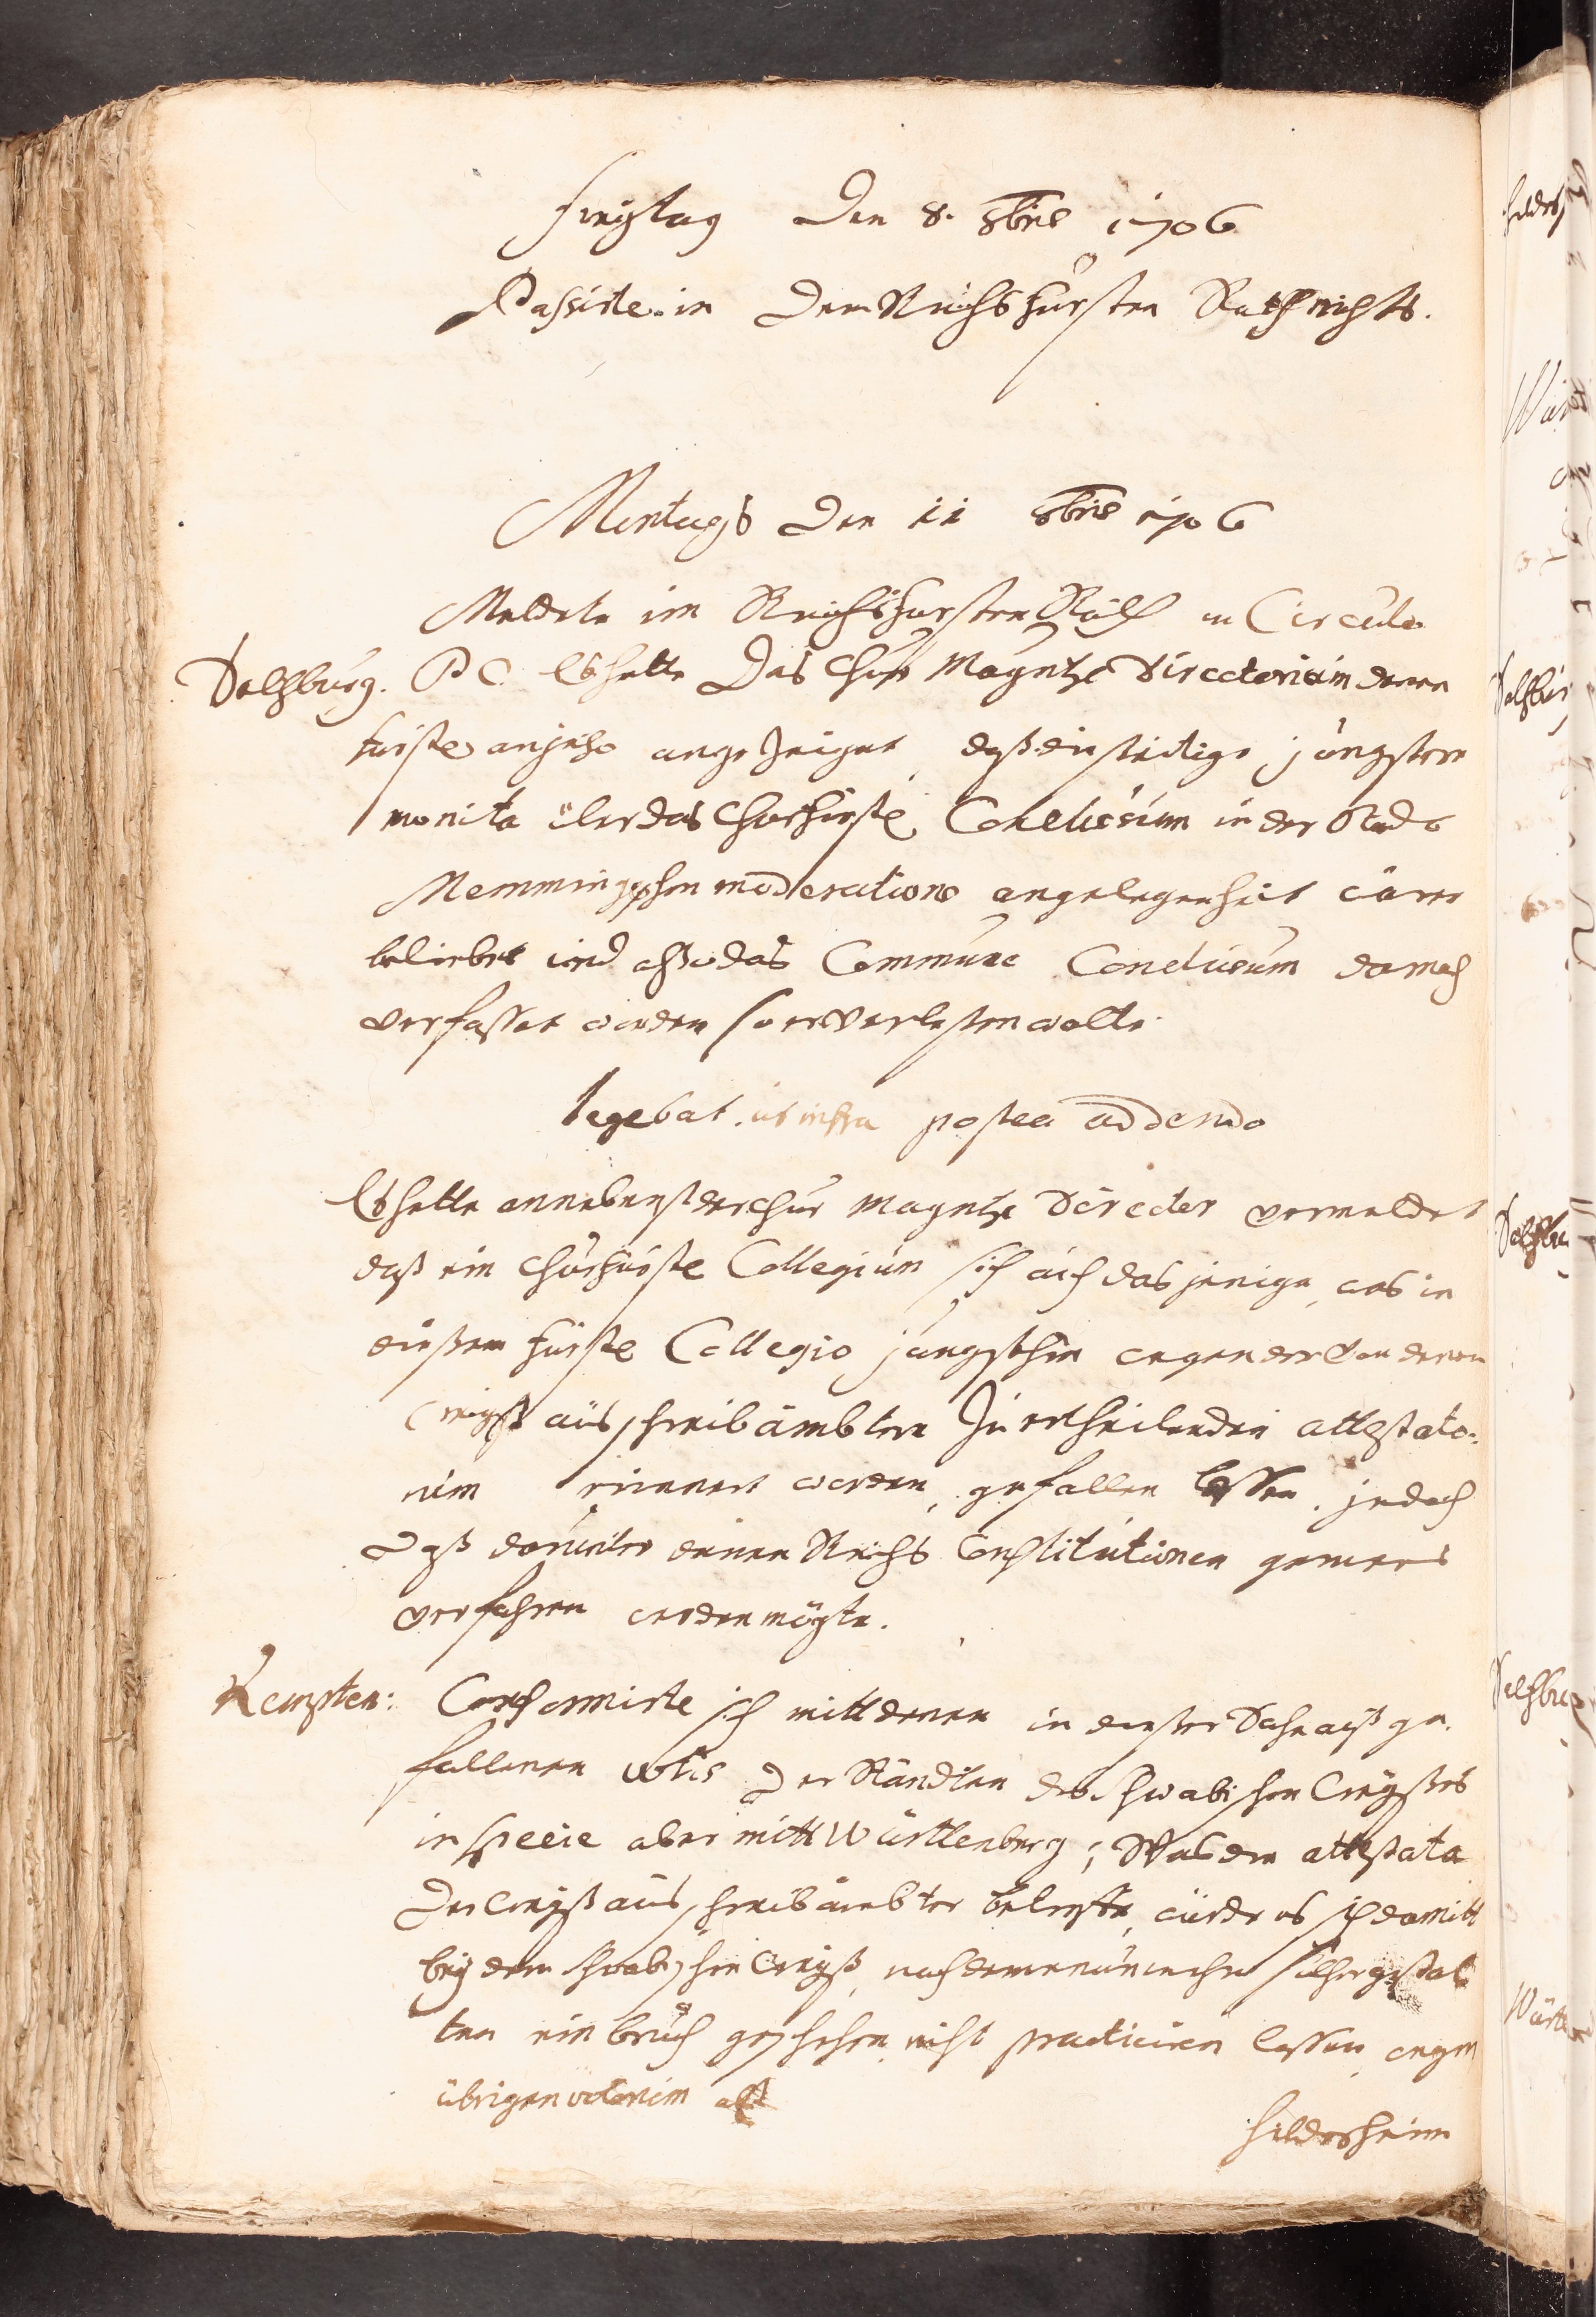 Freÿtag Den 8. 8bris 1706
Passirte in Dem Reichs Fürsten Rath nichts.
Montags Den 11 8bris 1706
Meldete im Reichsfürsten Rath in Circulo
Saltzburg. P C. Es hette Das Chur Mayntz Directorium denen
fürstl anjetzo angezeiget, daß die seitige jüngstere
monita über das Churfürstl Conclusum in der Stadt
Memmingischen moderations angelegenheit wären
beliebet und also das Commune Conclusum darnach
verfasset worden so er verlesen wolte.
legebat ut infra postea addendo
Es hette annebenst der Chur Mayntz Director vermeldet
daß ein Churfürstl Collegium sich auch dasjenige, was in
dießem Fürstl Collegio jüngsthin wegen der von denen
Creÿß aus schreib ämbtern zu ertheilenden attestato-
rum erinnert worden, gefallen lassen, jedoch
daß darunter denen Reichs Constitutionen gemees
verfahren werden mögte.
Kempten: Conformirte sich mitt denen in dießer Sache auß ge-
fallenen votis Der Ständten des Schwabischen Creÿßes
in specie aber mitt Würtlenberg; Was die attestata
der Creÿß aus schreib ämbter belangte, würde es sich damitt
beÿ dem Schwabischen Creÿß, nach deme nunmehr solchergestal
ten ein bruch geschehen, nicht practiciren lassen, wegen
übrigen votorum
Hildesheim